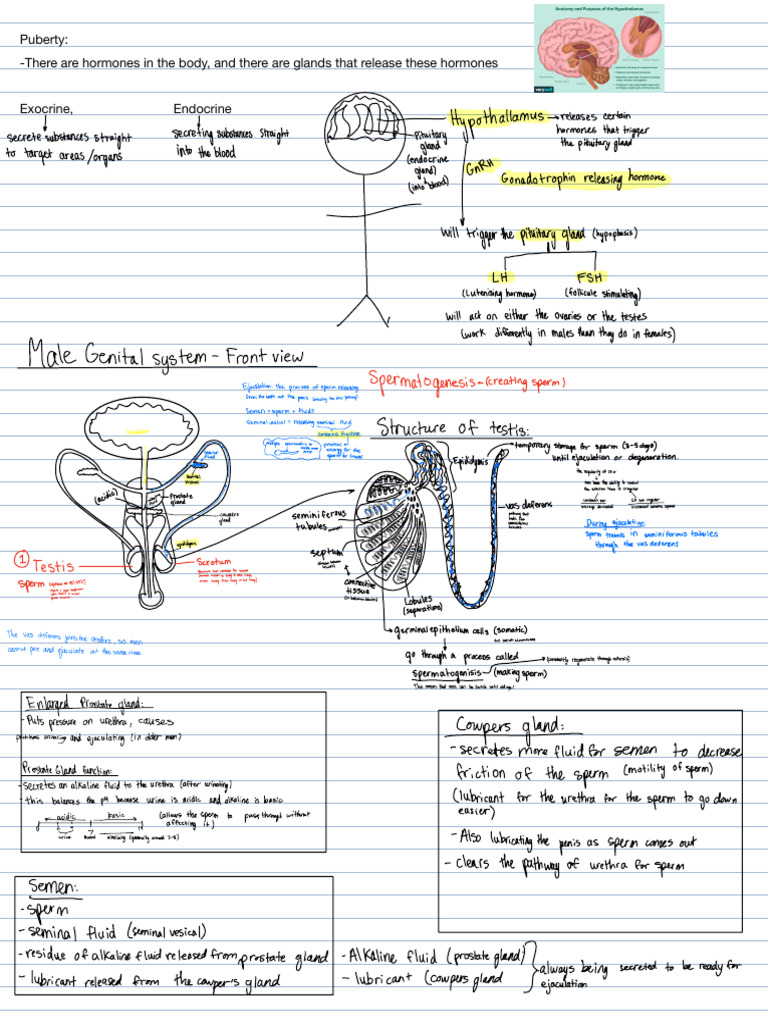 Puberty:
-There are hormones in the body, and there are glands that release these hormones
Anatomy and Purposes of the Hypothalamus
verywell
Exocrine,
secrete substances straight
to target areas/organs
Endocrine
secreting substances straight
into the blood
Pituitary
gland
(endocrine
gland)
(into blood)
Hypothallamus
releases certain
hormones that trigger
the pituitary gland
GnRH
Gonadotrophin releasing hormone
will trigger the pituitary gland (hypophysis)
LH
(Lutenising hormone)
FSH
(follicule stimulating)
will act on either the ovaries or the testes
(work differently in males than they do in females)
Male Genital system - Front view
Spermatogenesis - (creating sperm)
Ejaculation the process of sperm releasing
Semen = sperm + fluids
Seminal vesical = releasing seminal fluid
Structure of testis:
bladder
(acidic)
Prostate
gland
cowpers
gland
epididymis
① Testis
sperm
Scrotum
Epididymis
temporary storage for sperm (3-5 days)
until ejaculation or degeneration.
seminiferous
tubules
septum
connective
tissue
Lobules
(separations)
vas deferens
During ejaculation:
sperm travels in seminiferous tubules
through the vas deferens
germinal epithelium cells (somatic)
go through a process called
spermatogenisis (making sperm)
(constantly regenerate through mitosis)
The vas deferens joins the urethra, so men
cannot pee and ejaculate at the same time
Enlarged Prostate gland:
- Puts pressure on urethra, causes
problems urinating and ejaculating (in older men)
Prostate Gland function:
- secretes an alkaline fluid to the urethra (after urinating)
- this balances the pH because urine is acidic and alkaline is basic
acidic
basic
urine
7
(allows the sperm to pass through without
affecting it)
Cowpers gland:
- secretes more fluid for semen to decrease
friction of the sperm (motility of sperm)
(lubricant for the urethra for the sperm to go down
easier)
- Also lubricating the penis as sperm comes out
- Clears the pathway of urethra for sperm
Semen:
- sperm
- seminal fluid (seminal vesical)
- residue of alkaline fluid released from prostate gland
- lubricant released from the cowper's gland
- Alkaline fluid (prostate gland)
- lubricant (cowpers gland
always being secreted to be ready for
ejaculation